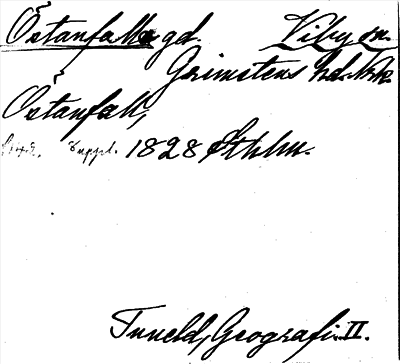 Östanfalla gd. Viby sn.
Grimstens hd. Nrk.
Östanfall,
Suppl. 1828 Sthlm.
Tuneld, Geografi. II.